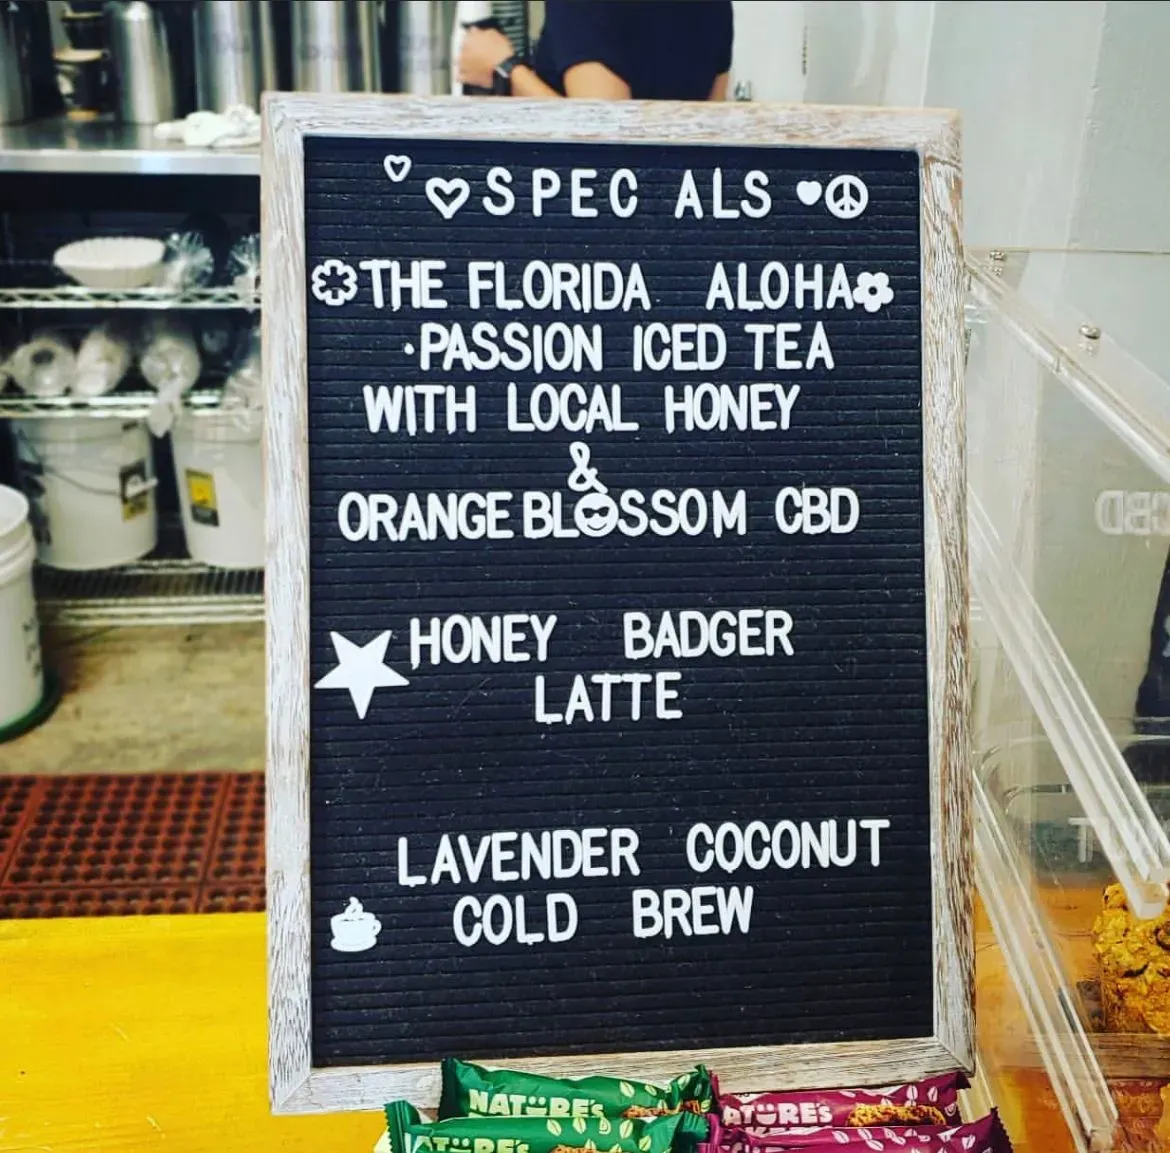 SPEC ALS
THE FLORIDA ALOHA
·PASSION ICED TEA
WITH LOCAL HONEY
&
ORANGE BLOSSOM CBD
HONEY BADGER
LATTE
LAVENDER COCONUT
COLD BREW
NATURE'S
NATURE'S